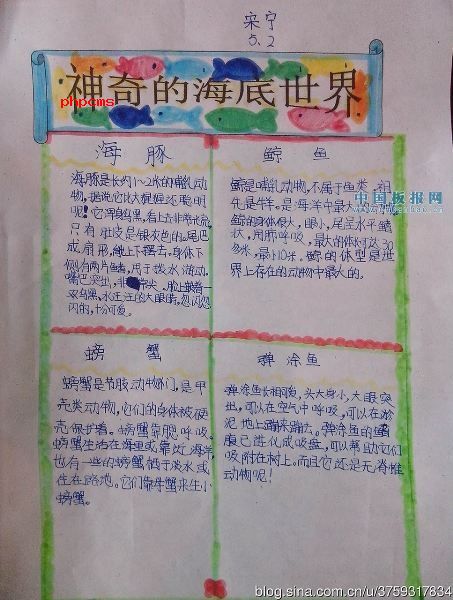 宋宁
5.2
神奇的海底世界
phpcms
海豚
海豚是长约1~2米的哺乳动
物，据说它比大猩猩还聪明
呢！它浑身乌黑，看上去非常光滑，
只有肚皮是银灰色的。尾巴
成扇形，能上下摆去，身体下
侧有两片鳍，用于拨水游动，
嘴巴突出，非常尖。脸上嵌着一
双乌黑、水汪汪的大眼睛，忽闪忽
闪的，十分可爱。
鲸鱼
鲸是哺乳动物，不属于鱼类，祖
先是牛羊。是海洋中最大的动物
鲸的身体很大，眼小，尾呈水平鳍
状，用肺呼吸，最大的体长可达30
多米，最小10米。鲸的体型是世
界上存在的动物中最大的。
中国板报网
螃蟹
螃蟹是节肢动物门，是甲
壳类动物，它们的身体被硬
壳保护着。螃蟹靠腮呼吸。
螃蟹生活在海里或靠近海洋
也有一些的螃蟹栖于淡水或
住在陆地。它们靠母蟹来生小
螃蟹。
弹涂鱼
弹涂鱼长相可爱，头大身小，大眼突
出，可以在空气中呼吸，可以在淤
泥地上蹦来蹦去。弹涂鱼的鳍
腹已进化成吸盘，可以帮助它们
吸附在树上。而且它还是无脊椎
动物呢！
blog.sina.com.cn/u/3759317834